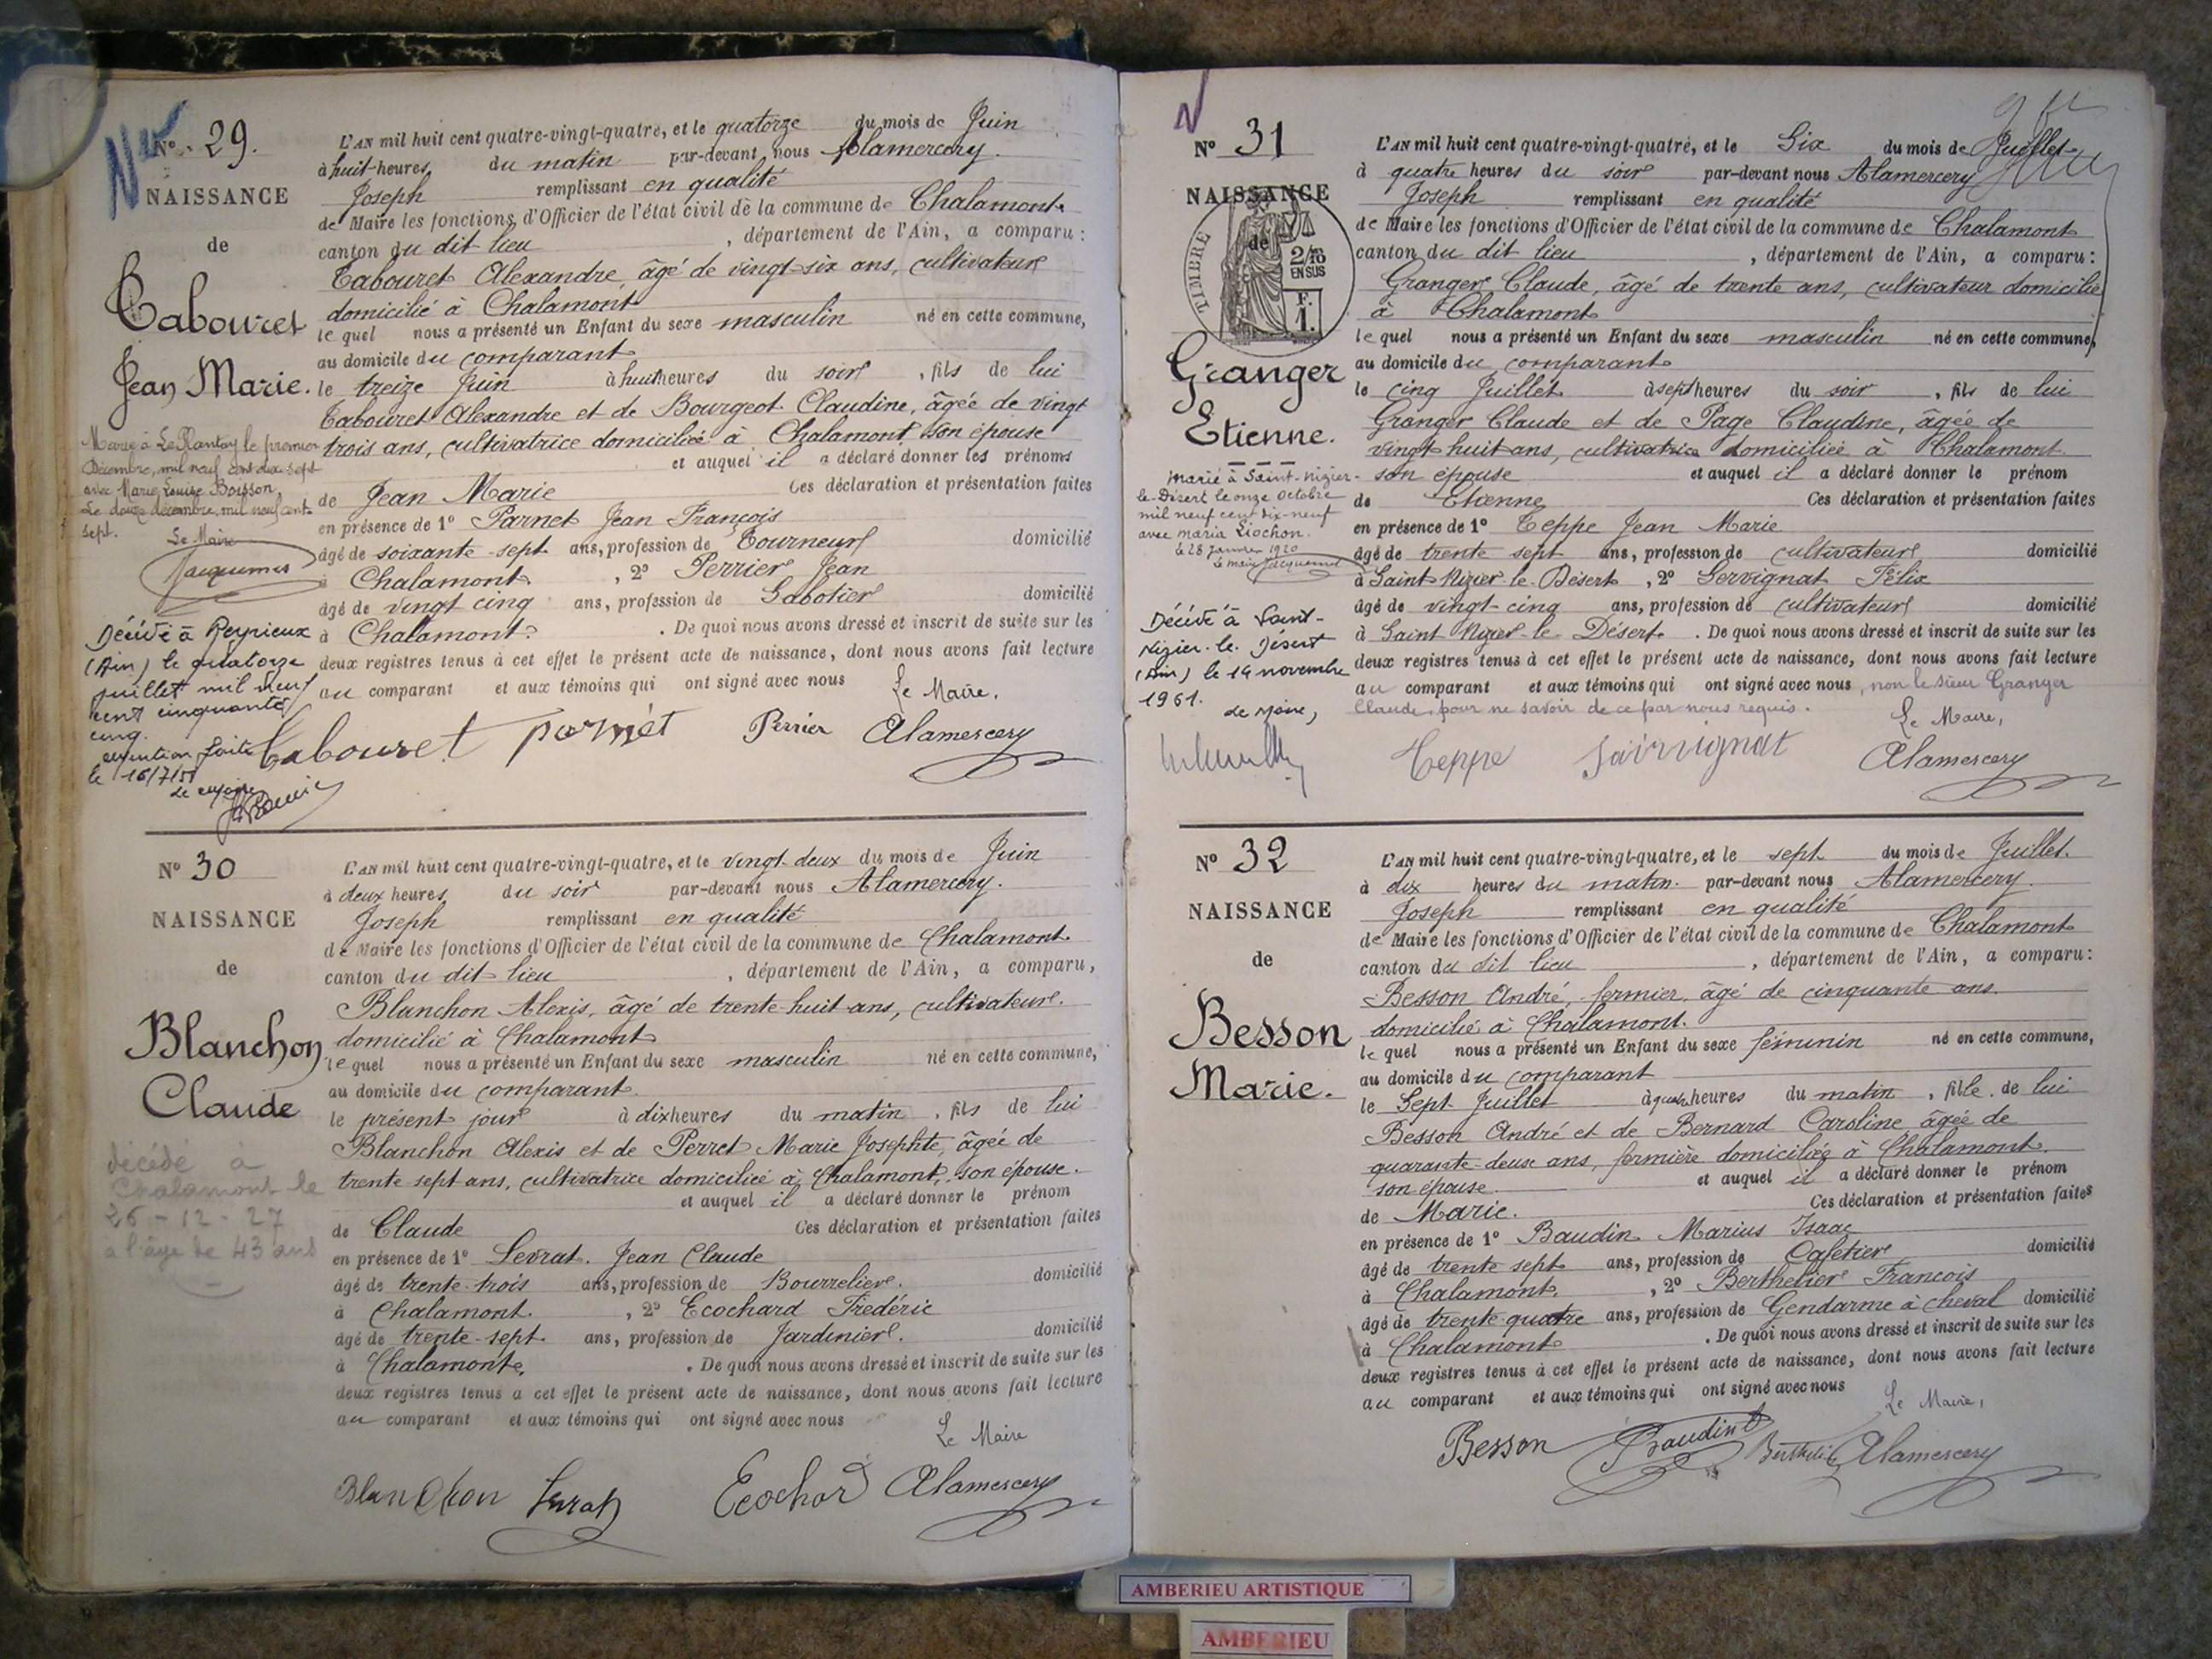 N° 29.
NAISSANCE
de
Tabouret
Jean Marie.
Marié à Le Plantay le premier
Décembre, mil neuf cent dix sept
avec Marie Louise Boisson.
Le douze décembre, mil neuf cent
sept.
Le Maire
Jacquemet
Décédé à Reyrieux
(Ain) le quatorze
juillet mil neuf
cent cinquante
cinq.
mention faite
le 16/7/55
Le Maire
L'AN mil huit cent quatre-vingt-quatre, et le quatorze du mois de Juin
à huit heures du matin par-devant nous Alamercery
Joseph remplissant en qualité
de Maire les fonctions d'Officier de l'état civil de la commune de Chalamont
canton du dit lieu , département de l'Ain, a comparu :
Tabouret Alexandre, âgé de vingt-six ans, cultivateur
domicilié à Chalamont
lequel nous a présenté un Enfant du sexe masculin né en cette commune,
au domicile du comparant
le treize Juin à huit heures du soir , fils de lui
Tabouret Alexandre et de Bourgeot Claudine, âgée de vingt
trois ans, cultivatrice domiciliée à Chalamont, son épouse
et auquel il a déclaré donner les prénoms
de Jean Marie Ces déclaration et présentation faites
en présence de 1° Parnet Jean François
âgé de soixante-sept ans, profession de Tourneur domicilié
à Chalamont. , 2° Perrier Jean
âgé de vingt cinq ans, profession de Sabotier domicilié
à Chalamont. . De quoi nous avons dressé et inscrit de suite sur les
deux registres tenus à cet effet le présent acte de naissance, dont nous avons fait lecture
au comparant et aux témoins qui ont signé avec nous
Le Maire,
Tabouret parnet Perrier Alamercery
N° 30
NAISSANCE
de
Blanchon
Claude
décédé à
Chalamont le
26-12-27
à l'âge de 43 ans
L'AN mil huit cent quatre-vingt-quatre, et le vingt-deux du mois de Juin
à deux heures du soir par-devant nous Alamercery.
Joseph remplissant en qualité
de Maire les fonctions d'Officier de l'état civil de la commune de Chalamont
canton du dit lieu , département de l'Ain, a comparu,
Blanchon Alexis, âgé de trente-huit ans, cultivateur.
domicilié à Chalamont
lequel nous a présenté un Enfant du sexe masculin né en cette commune,
au domicile du comparant.
le présent jour à dix heures du matin , fils de lui
Blanchon Alexis et de Perret Marie Josephte, âgée de
trente sept ans, cultivatrice domiciliée à Chalamont, son épouse.
et auquel il a déclaré donner le prénom
de Claude Ces déclaration et présentation faites
en présence de 1° Levrat Jean Claude
âgé de trente-trois ans, profession de Bourrelier. domicilié
à Chalamont. , 2° Ecochard Frédéric
âgé de trente-sept ans, profession de Jardinier. domicilié
à Chalamont. . De quoi nous avons dressé et inscrit de suite sur les
deux registres tenus à cet effet le présent acte de naissance, dont nous avons fait lecture
au comparant et aux témoins qui ont signé avec nous
Le Maire
Blanchon Levrat Ecochard Alamercery
N° 31
NAISSANCE
de
TIMBRE
2/10
EN SUS
F.
1.
Granger
Etienne.
marié à Saint-Nizier-
le-Désert le onze octobre
mil neuf cent dix-neuf
avec Maria Liochon.
le 28 Janvier 1920
Le maire Jacquemet
Décédé à Saint-
Nizier-le-Désert
(Ain) le 14 novembre
1961.
Le Maire,
L'AN mil huit cent quatre-vingt-quatre, et le Six du mois de Juillet
à quatre heures du soir par-devant nous Alamercery
Joseph remplissant en qualité
de Maire les fonctions d'Officier de l'état civil de la commune de Chalamont
canton du dit lieu , département de l'Ain, a comparu :
Granger Claude, âgé de trente ans, cultivateur domicilié
à Chalamont
lequel nous a présenté un Enfant du sexe masculin né en cette commune,
au domicile du comparant
le cinq Juillet à sept heures du soir , fils de lui
Granger Claude et de Page Claudine, âgée de
vingt huit ans, cultivatrice domiciliée à Chalamont
son épouse et auquel il a déclaré donner le prénom
de Etienne Ces déclaration et présentation faites
en présence de 1° Teppe Jean Marie
âgé de trente sept ans, profession de cultivateur domicilié
à Saint Nizier-le-Désert , 2° Servignat Félix
âgé de vingt-cinq ans, profession de cultivateur domicilié
à Saint Nizier-le-Désert . De quoi nous avons dressé et inscrit de suite sur les
deux registres tenus à cet effet le présent acte de naissance, dont nous avons fait lecture
au comparant et aux témoins qui ont signé avec nous, non le sieur Granger
Claude, pour ne savoir de ce par nous requis.
Le Maire,
Teppe Sairvignat Alamercery
N° 32
NAISSANCE
de
Besson
Marie.
L'AN mil huit cent quatre-vingt-quatre, et le sept du mois de Juillet.
à dix heures du matin. par-devant nous Alamercery
Joseph remplissant en qualité
de Maire les fonctions d'Officier de l'état civil de la commune de Chalamont
canton du dit lieu , département de l'Ain, a comparu :
Besson André, fermier, âgé de cinquante ans.
domicilié à Chalamont.
lequel nous a présenté un Enfant du sexe féminin né en cette commune,
au domicile du comparant
le Sept Juillet à quatre heures du matin , fille de lui
Besson André et de Bernard Caroline âgée de
quarante-deux ans, fermière domiciliée à Chalamont.
son épouse et auquel il a déclaré donner le prénom
de Marie. Ces déclaration et présentation faites
en présence de 1° Baudin Marius Isaac
âgé de trente sept ans, profession de Cafetier domicilié
à Chalamont. , 2° Berthelier François
âgé de trente-quatre ans, profession de Gendarme à cheval domicilié
à Chalamont . De quoi nous avons dressé et inscrit de suite sur les
deux registres tenus à cet effet le présent acte de naissance, dont nous avons fait lecture
au comparant et aux témoins qui ont signé avec nous
Le Maire,
Besson Baudin Berthelier Alamercery
AMBERIEU ARTISTIQUE
AMBERIEU